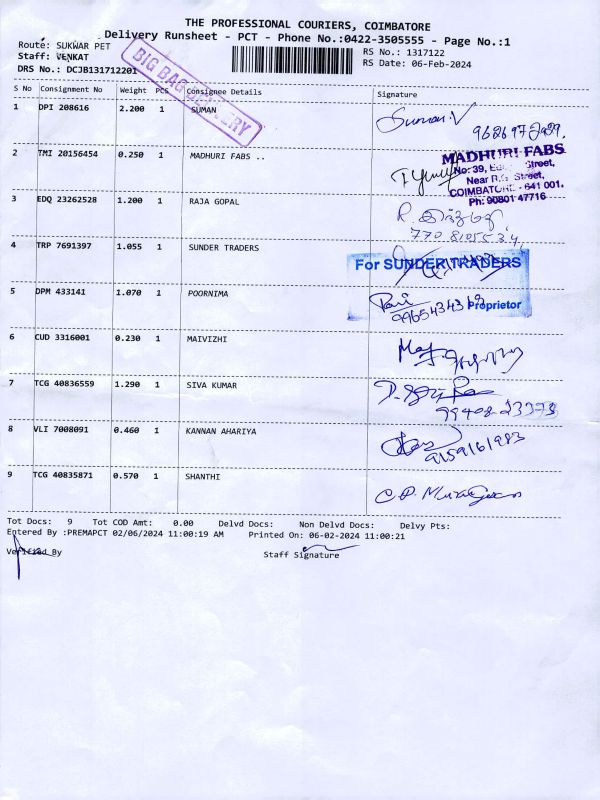 THE PROFESSIONAL COURIERS, COIMBATORE
Delivery Runsheet - PCT - Phone No.:0422-3505555 - Page No.:1
Route: SUKWAR PET
RS No.: 1317122
Staff: VENKAT
RS Date: 06-Feb-2024
DRS No.: DCJB131712201
BIG BAG DELIVERY
S No Consignment No Weight PCS Consignee Details Signature
1 DPI 208616 2.200 1 SUMAN Suman.V
2 TMI 20156454 0.250 1 MADHURI FABS ..
MADHURI FABS
No: 39, Street,
Near R.G. Street,
COIMBATORE - 641 001.
Ph: 90801 47716
3 EDQ 23262528 1.200 1 RAJA GOPAL
4 TRP 7691397 1.055 1 SUNDER TRADERS
For SUNDER TRADERS
Proprietor
5 DPM 433141 1.070 1 POORNIMA
9965434369
6 CUD 3316001 0.230 1 MAIVIZHI
7 TCG 40836559 1.290 1 SIVA KUMAR
8 VLI 7008091 0.460 1 KANNAN AHARIYA
9159161983
9 TCG 40835871 0.570 1 SHANTHI
Tot Docs: 9 Tot COD Amt: 0.00 Delvd Docs: Non Delvd Docs: Delvy Pts:
Entered By :PREMAPCT 02/06/2024 11:00:19 AM Printed On: 06-02-2024 11:00:21
Verified By Staff Signature